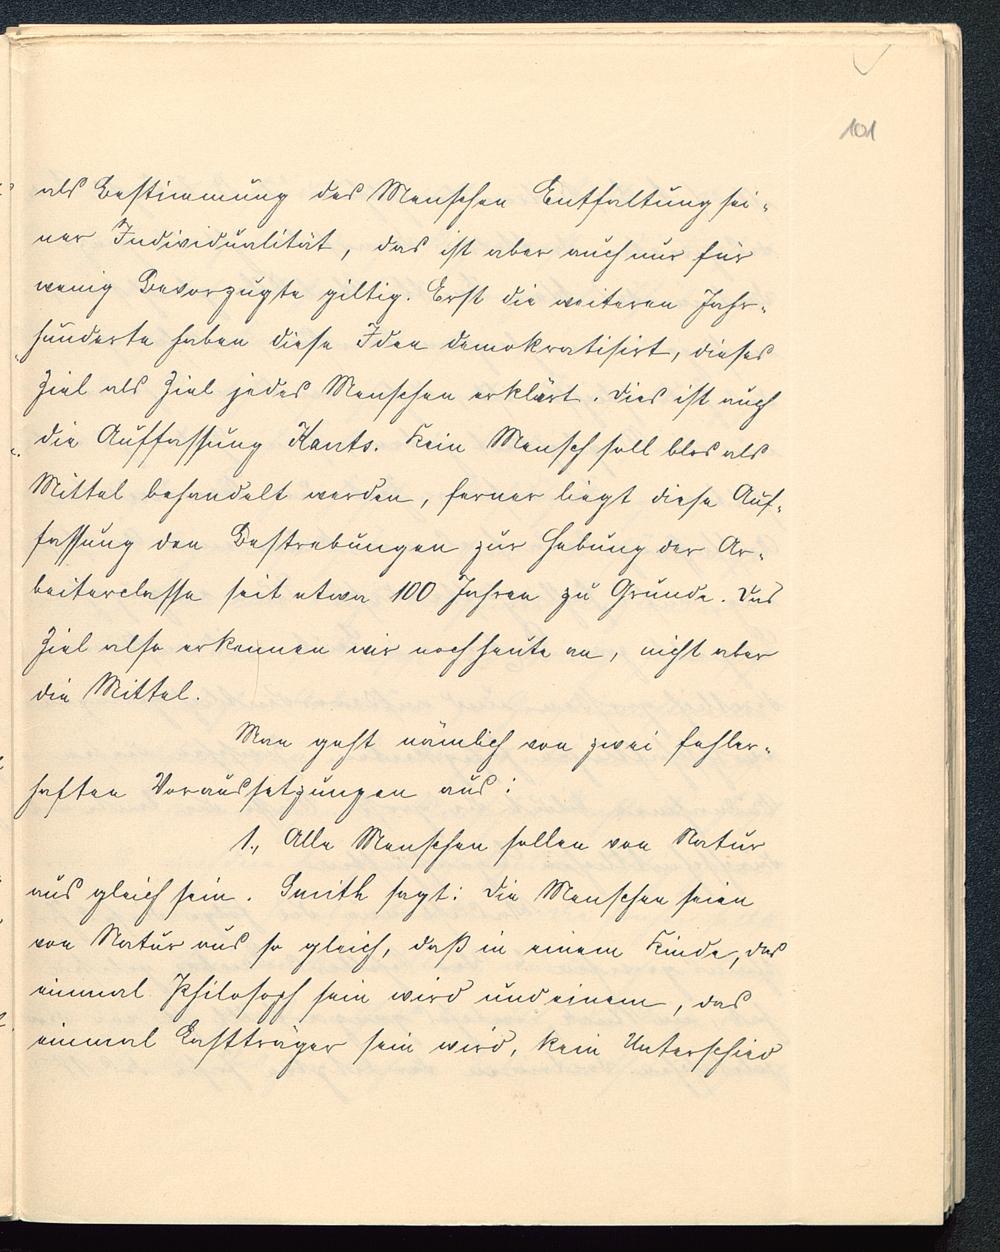 101
als Bestimmung des Menschen Entfaltung sei-
ner Individualität, das ist aber auch nur für
wenig Bevorzugte giltig. Erst die weiteren Jahr-
hunderte haben diese Idee demokratisirt, dieses
Ziel als Ziel jedes Menschen erklärt. Dies ist auch
die Auffassung Kants. Kein Mensch soll blos als
Mittel behandelt werden, ferner liegt diese Auf-
fassung den Bestrebungen zur Hebung der Ar-
beiterclasse seit etwa 100 Jahren zu Grunde. Das
Ziel also erkennen wir noch heute an, nicht aber
die Mittel.
Man geht nämlich von zwei fehler-
haften Voraussetzungen aus:
1., Alle Menschen sollen von Natur
aus gleich sein. Smith sagt: Die Menschen seien
von Natur aus so gleich, daß in einem Kinde, das
einmal Philosoph sein wird und einem, das
einmal Lastträger sein wird, kein Unterschied